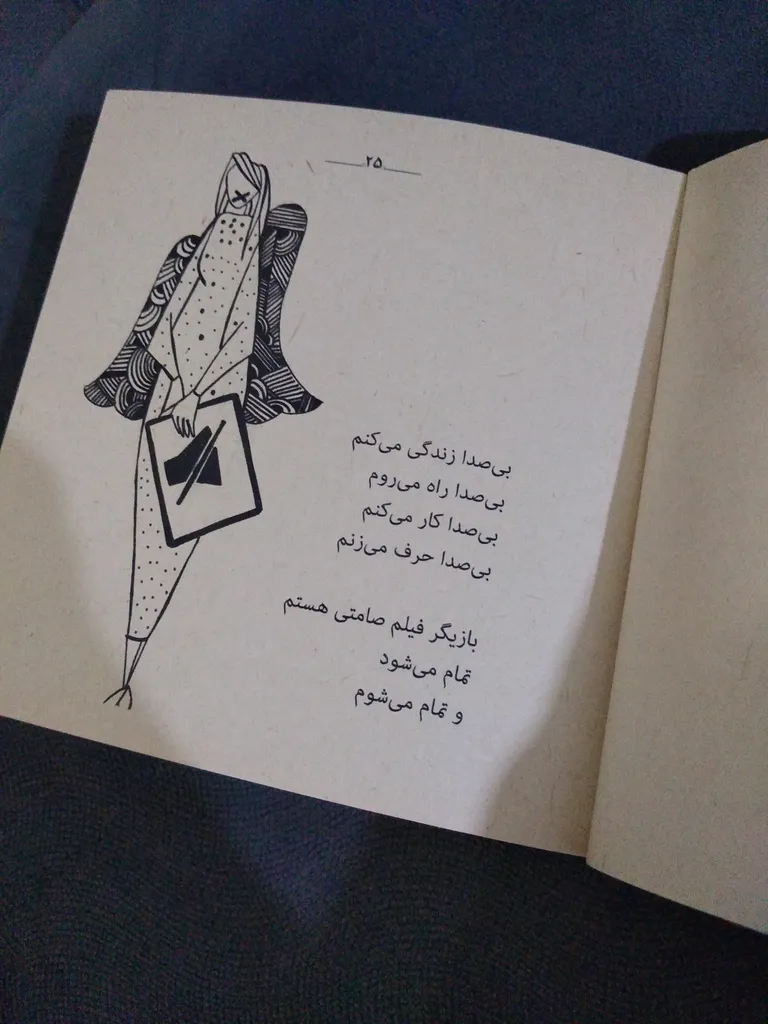 ۲۵
بی‌صدا زندگی می‌کنم
بی‌صدا راه می‌روم
بی‌صدا کار می‌کنم
بی‌صدا حرف می‌زنم
بازیگر فیلم صامتی هستم
تمام می‌شود
و تمام می‌شوم